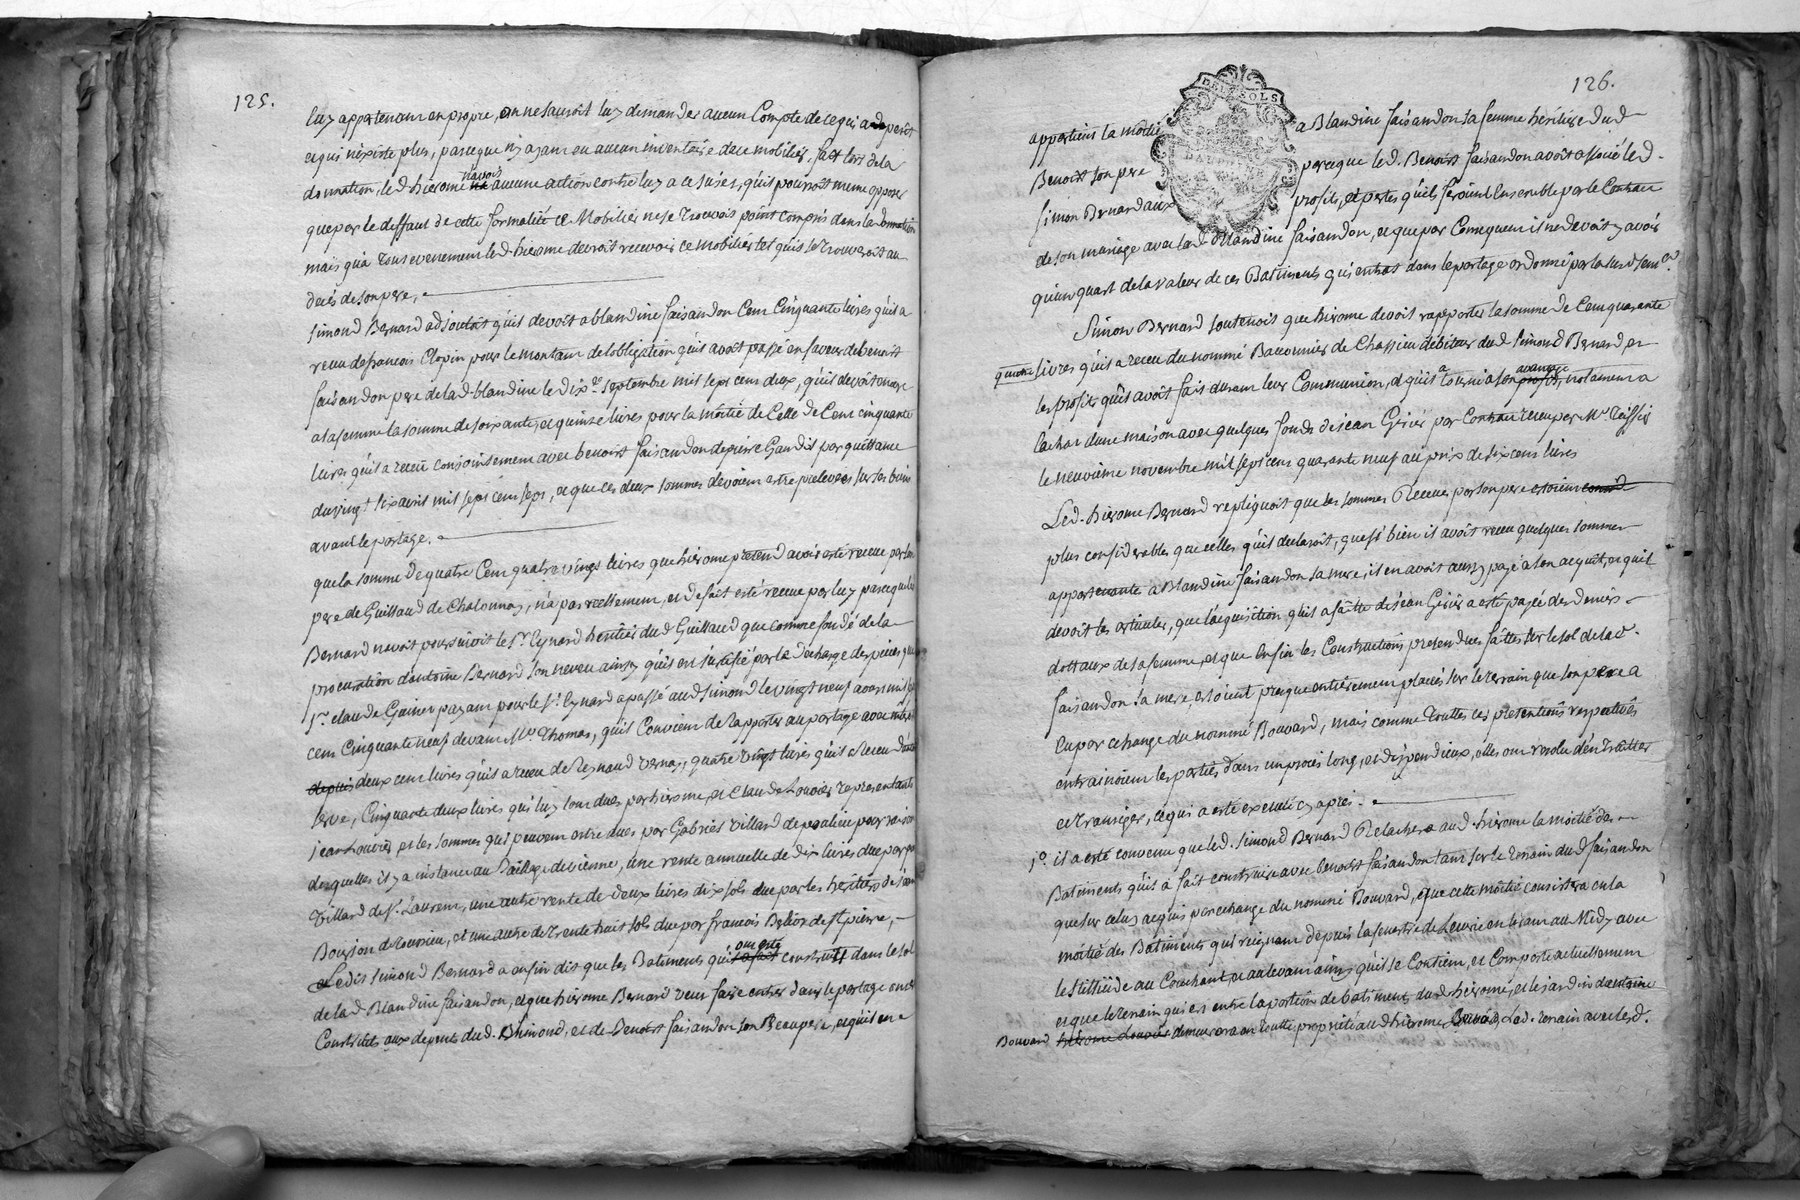 125.
luy appartenant en propre, on ne sauroit luy demander aucun Compte de ce qui a deperit
et qui n'existe plus, parceque n'y ayant eu aucun inventaire de ce mobilier, fait lors de la
donnation, led hierome n'avoit aucune action contre luy a ce sujet, qu'il pourroit meme opposer
que par le deffaut de cette formalité ce Mobilier ne se trouvoit point compris dans la donnation
mais qu'a tous evenement led hierome devroit recevoir ce mobilier tel qu'il se trouveroit au
decès de son pere,
Simond Bernard adjoutoit qu'il devoit a blandine faisandon Cent Cinquante livres qu'il a
receu de francois Clopin pour le montant de lobligation qu'il avoit passé en faveur de benoist
faisandon pere de lad blandine le dix septembre mil sept cent deux, qu'il devoit encore
a sa femme la somme de soixante, et quinze livres pour la moitié de Celle de Cent cinquante
livres qu'il a receu conjointement avec benoist faisandon de pierre Gandil par quittance
du vingt six avril mil sept cent sept, et que ces deux sommes devoient estre prelevées sur ses biens
avant le partage.
que la somme de quatre Cent quatre vingt livres que hierome pretend avoir esté receue par son
pere de Guillaud de Chalonnay, n'a pas reellement, et de fait esté receue par luy parceque led
Bernard n'avoit poursuivoit le Sr Eynard heritier dud Guillaud que comme fondé de la
procuration dantoine Bernard son neveu ainsy qu'il en justifié par la decharge des pieces que
Sr. claude Garnier payant pour le Sr. Eynard a passé aud simond le vingt neuf aoust mil sept
cent cinquante neuf devant Me Thomas, qu'il Convient de rapporter au partage
depuis deux cent livres qu'il a receu de Reynaud Vernay, quatre vingt livres qu'il a receu
Cinquante deux livres qui luy sont dues par hierome, et Claude Louvier representants
jean Louvier, et les sommes qui peuvent estre dues par Gabriel Villard de pour raison
desquelles il y a instance au Bailliage de vienne, une rente annuelle de dix livres due par
Villard de St. Laurent, une autre rente de deux livres dix sols due par les heritiers de
Boujon de et une autre de trente huit sols due par francois de St pierre,
et Ledit simond Bernard a enfin dit que les Batiments qui ont esté construit dans le sol
de lad Blandine faisandon, et que hierome Bernard veut faire entrer dans le partage ont esté
Construits aux depens dud. Simond, et de Benoist faisandon son Beaupere, et qu'il en
126.
DEUX SOLS
appartient la moitié a Blandine faisandon sa femme héritiere dud
Benoist son pere parceque led. Benoist faisandon avoit associé led.
Simon Bernard aux profits, et pertes qu'ils feroient Ensemble par le Contrat
de son mariage avec lad Blandine faisandon, et que par Consequent il ne devoit y avoir
qu'un quart de la valeur de ces Batiments qui entrat dans le partage ordonné par la susd sence.
Simon Bernard soutenoit que hierome devoit rapporter la somme de Cent quarante
quatre livres qu'il a receu du nommé Bauonnier de Chassieu débiteur dud Simond Bernard, et
les profits qu'il avoit fait durant leur Communion, et qu'il a tourné a son avantage notament a
lachat d'une maison avec quelques fonds de jean Girier par Contrat receu par Me Teissier
le neuvième novembre mil sept cent quarante neuf au prix de six cent livres
Led. hierome Bernard repliquoit que les sommes Receues par son pere estoient
plus considerables que celles qu'il declaroit, que si bien il avoit receu quelques sommes
appartenante a Blandine faisandon sa mere, il en avoit aussy payé a son acquit, et qu'il
devoit les articuler, que lacquisition qu'il a faitte de jean Girier a esté payée des deniers
dottaux de sa femme, et que Enfin les Constructions pretendues faittes sur le sol de lad.
faisandon sa mere estoient presque entièrement placées sur le terrain que son pere a
Eu par echange du nommé Bouvard, mais comme touttes ces pretentions respectives
entrainoient les parties dans un procès long, et dispendieux, elles ont resolu d'en traitter
et transiger, ce qui a esté executé cy après.
1º il a esté convenu que led. Simond Bernard Relachera aud. hierome la moitié des
Batiments qu'il a fait construire avec benoist faisandon tant sur le terrain dud faisandon
que sur celuy acquis par echange du nommé Bouvard, et que cette moitié consistera en la
moitié des Batiments qui reignent depuis la fenestre de Leurie en tirant au Midy avec
le Stillicide au Couchant, et au levant ainsy qu'il se Contient, et Comporte actuellement
et que le terrain qui est entre la portion de batiments dud hierome, et le jardin dantoine
Bouvard demeurera en toutte proprieté aud hierome Bernard, Led. terrain avec led.